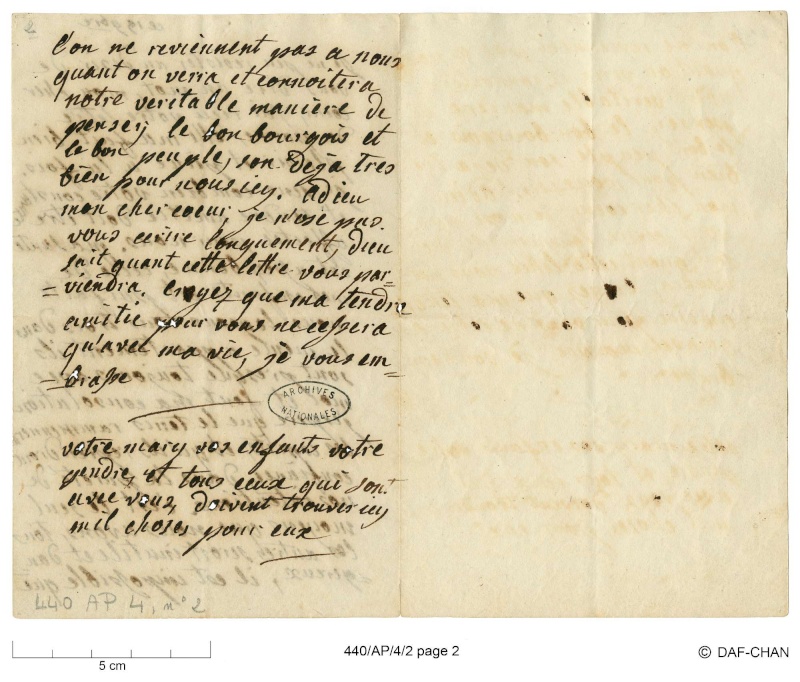 2
l'on ne reviennent pas a nous
quant on verra et connoitera
notre veritable manière de
penser; le bon bourgois et
le bon peuple, son deja tres
bien pour nous icy. adieu
mon cher coeur, je n'ose pas
vous ecrire longuement, dieu
sait quant cette lettre vous par=
=viendra. croyez que ma tendre
amitie pour vous ne cessera
qu'avec ma vie, je vous em=
=brasse
ARCHIVES
NATIONALES
votre mary vos enfants votre
gendre, et tous ceux qui sont
avec vous, doivent trouver icy
mil choses pour eux
440 AP 4, n° 2
5 cm
440/AP/4/2 page 2
© DAF-CHAN